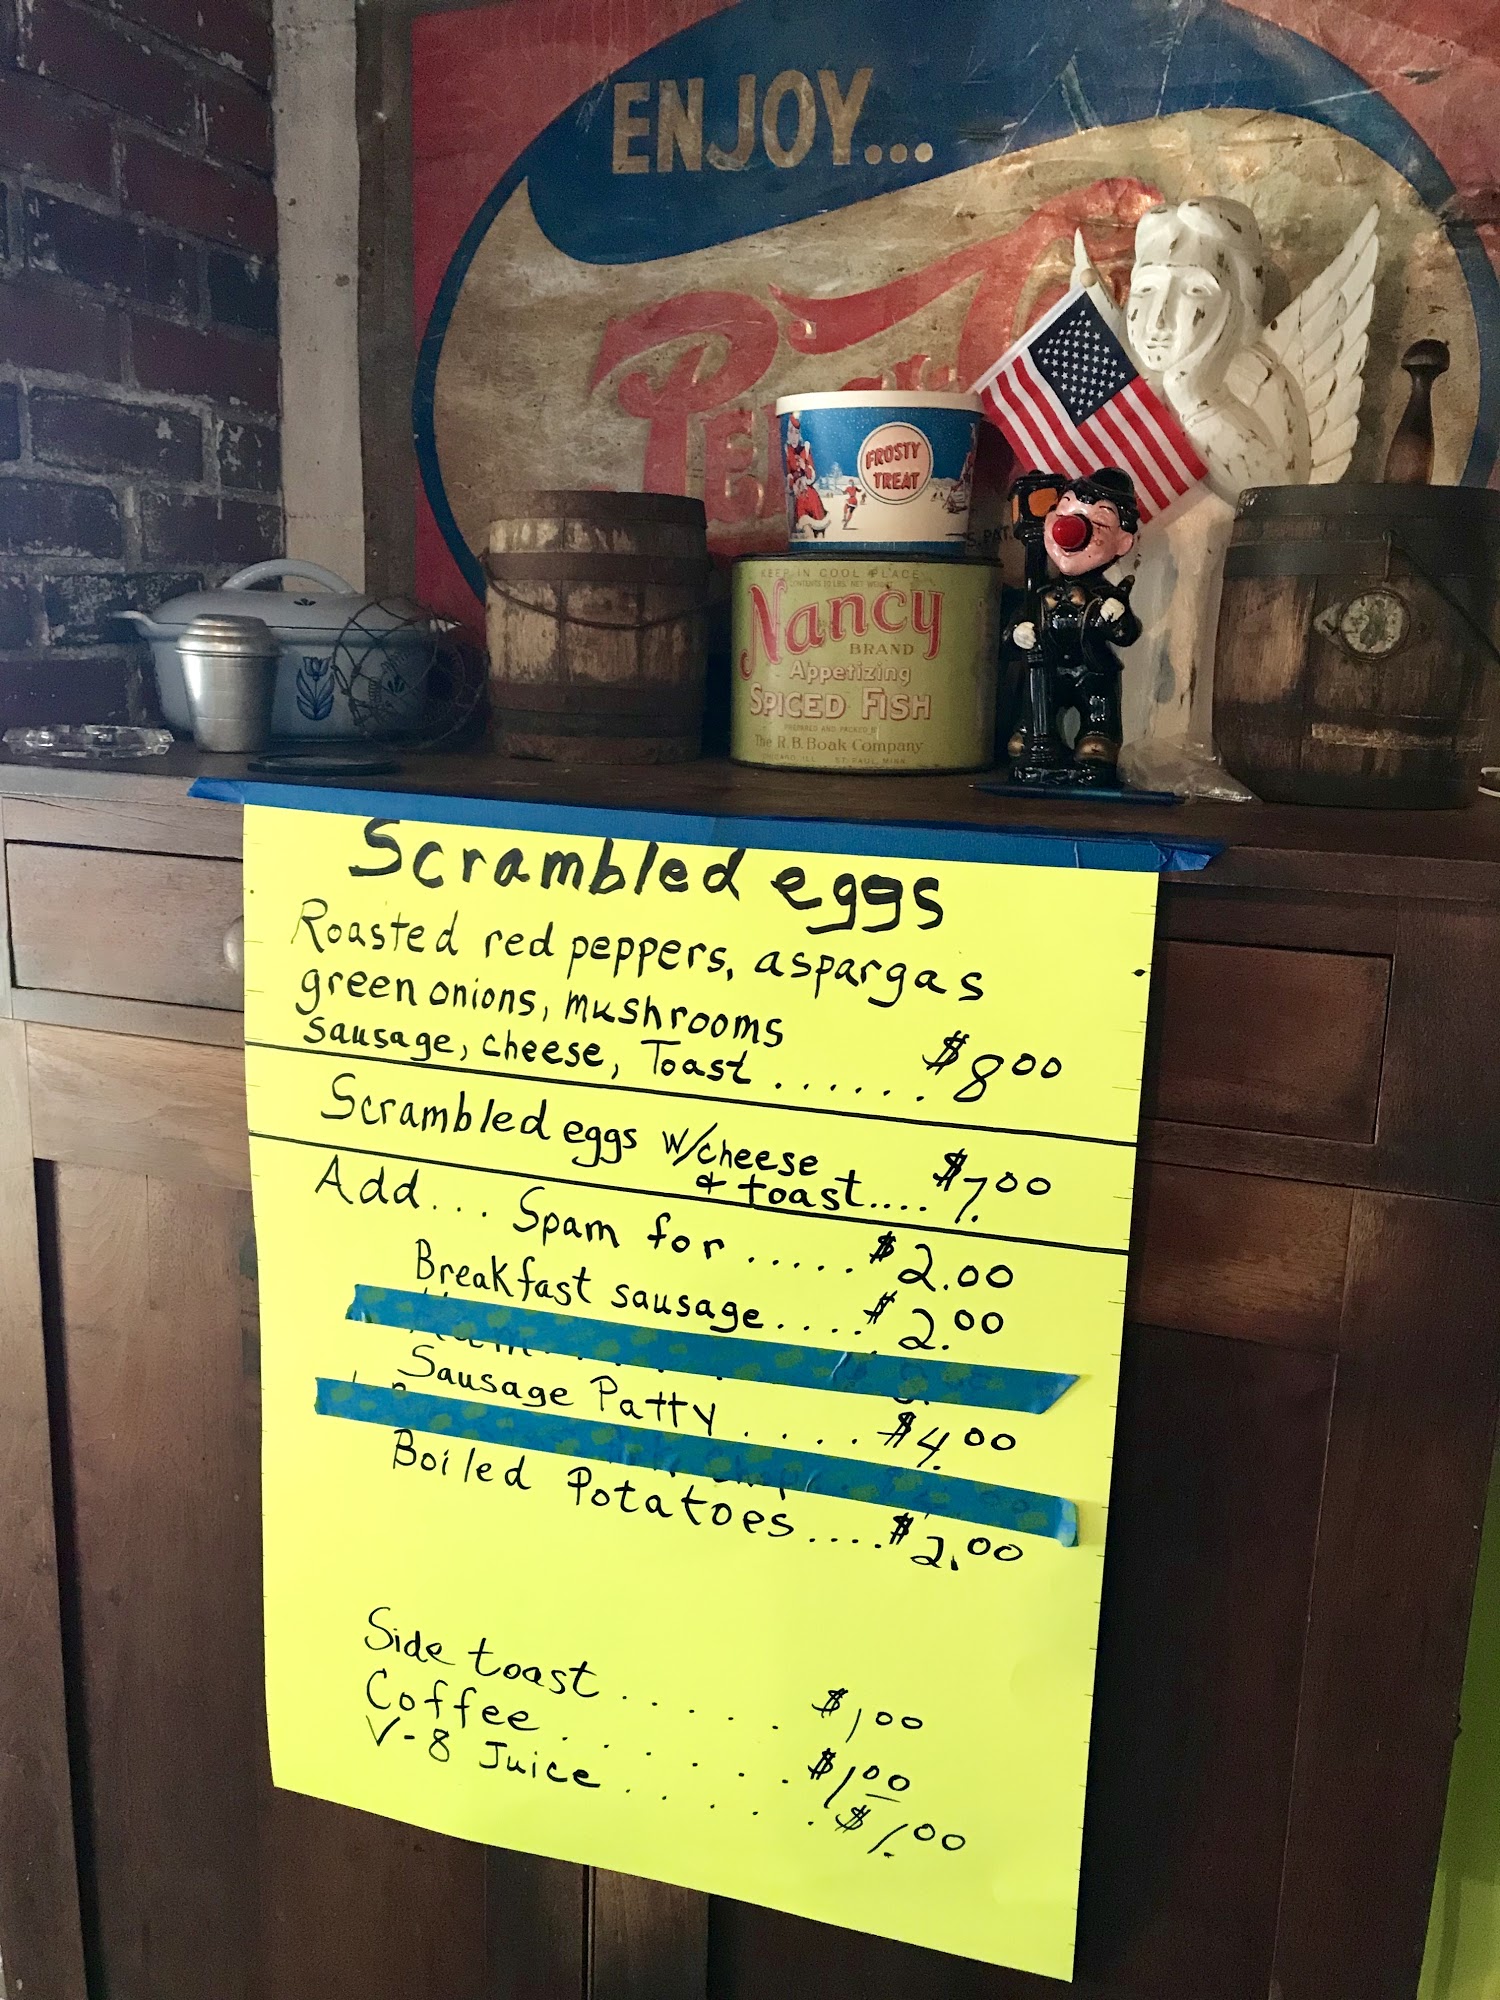 ENJOY...
FROSTY
TREAT
S. PAT.
KEEP IN COOL PLACE
CONTENTS 10 LBS. NET WEIGHT
Nancy
BRAND
Appetizing
SPICED FISH
PREPARED AND PACKED
The R. B. Boak Company
ST. PAUL, MINN.
Scrambled eggs
Roasted red peppers, aspargas
green onions, mushrooms
sausage, cheese, Toast ...... $8.00
Scrambled eggs w/cheese
& toast.... $7.00
Add... Spam for ..... $2.00
Breakfast sausage.... $2.00
Sausage Patty ..... $4.00
Boiled Potatoes .... $2.00
Side toast ..... $1.00
Coffee ...... $1.00
V-8 Juice ..... $1.00